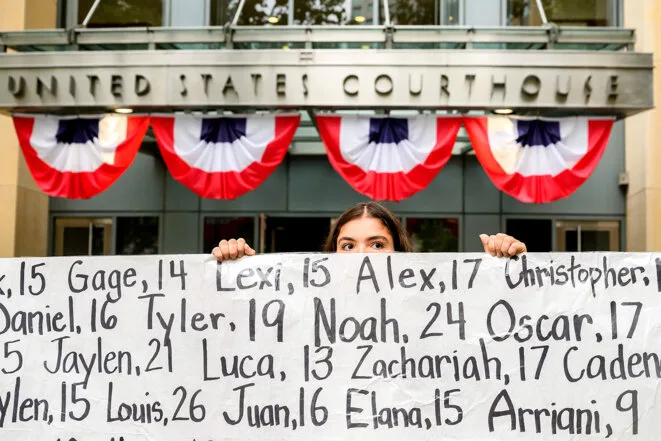 UNITED STATES COURTHOUSE
, 15 Gage, 14 Lexi, 15 Alex, 17 Christopher,
Daniel, 16 Tyler, 19 Noah, 24 Oscar, 17
5 Jaylen, 21 Luca, 13 Zachariah, 17 Caden
ylen, 15 Louis, 26 Juan, 16 Elana, 15 Arriani, 9